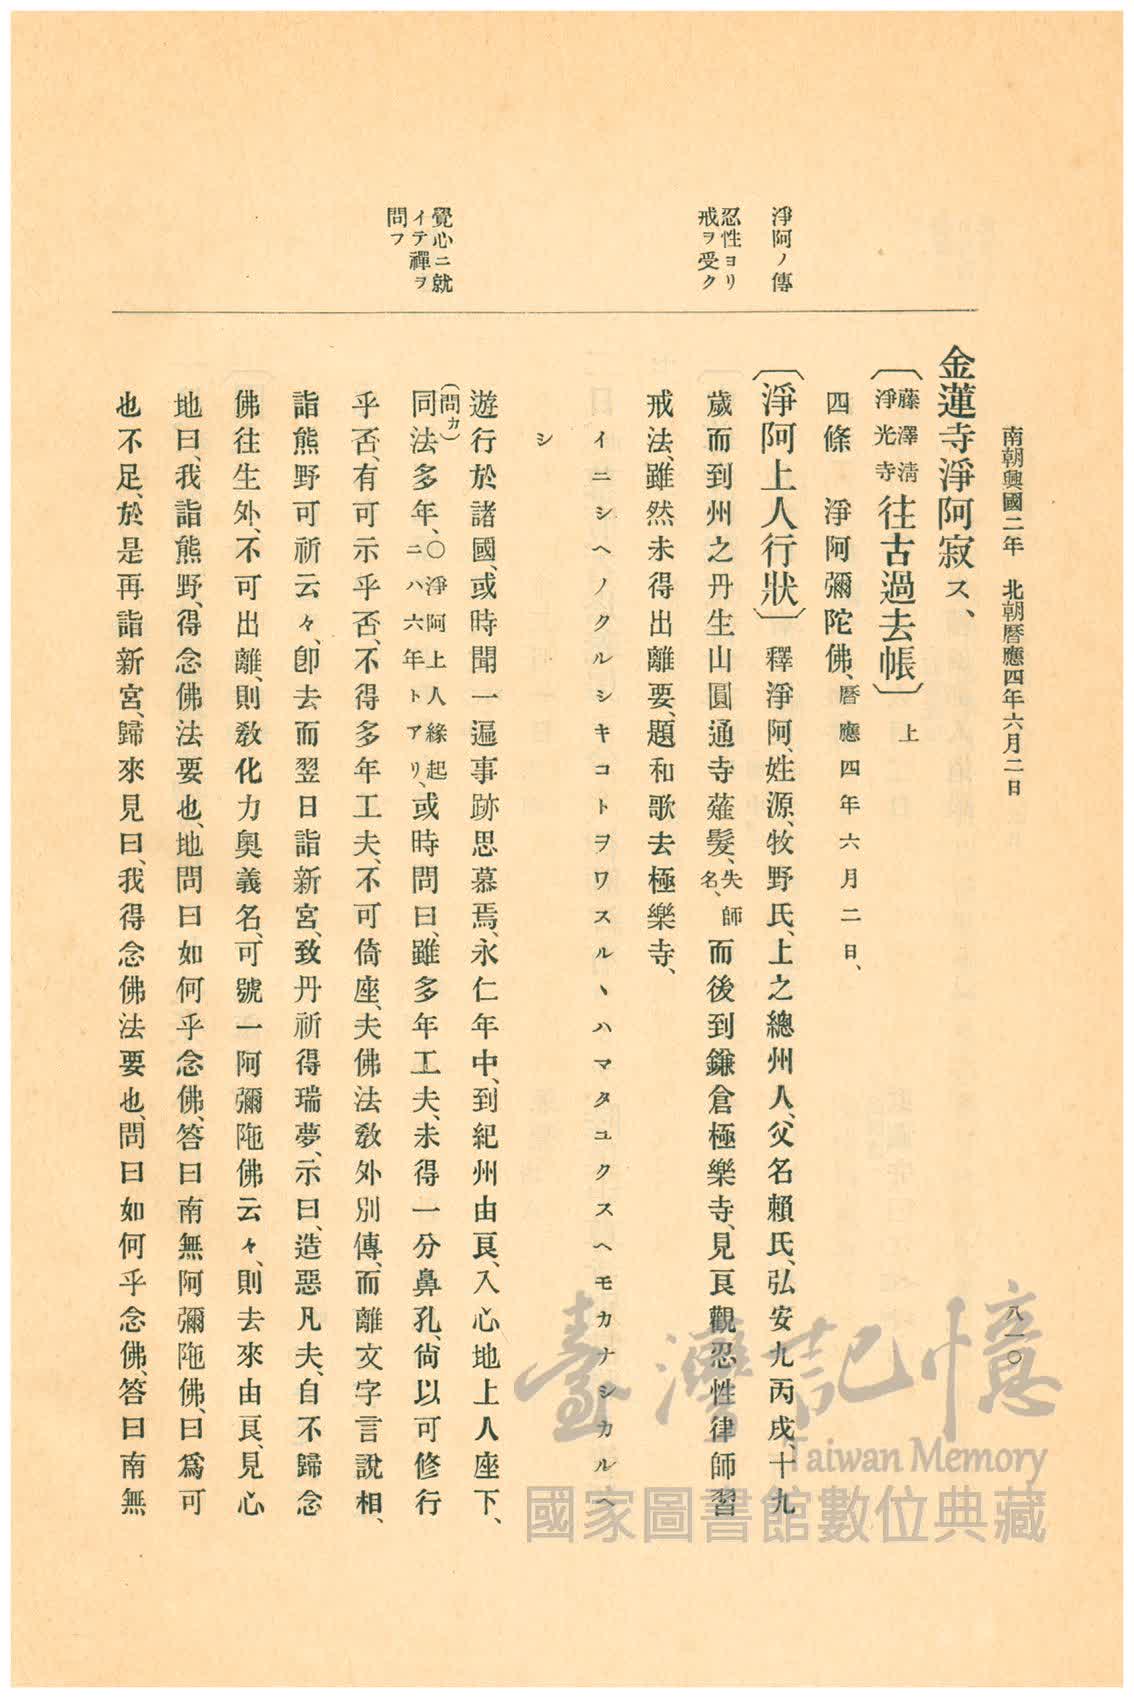 南朝興國二年　北朝曆應四年六月二日
八一〇
淨阿ノ傳
忍性ヨリ
戒ヲ受ク
覺心ニ就
イテ禪ヲ
問フ
金蓮寺淨阿寂ス、
〔藤澤淸淨光寺往古過去帳〕上
四條　淨阿彌陀佛、曆應四年六月二日、
〔淨阿上人行狀〕釋淨阿、姓源、牧野氏、上之總州人、父名賴氏、弘安九丙戌、十九
歲而到州之丹生山圓通寺薙髮、失師名、而後到鎌倉極樂寺、見良觀忍性律師習
戒法、雖然未得出離要、題和歌去極樂寺、
イニシヘノクルシキコトヲワスルヽハマタユクスヘモカナシカルヘ
シ
遊行於諸國、或時聞一遍事跡思慕焉、永仁年中、到紀州由良、入心地上人座下、
同(問カ)法、多年、〇淨阿上人緣起ニハ六年トアリ、或時問曰、雖多年工夫、未得一分鼻孔、尙以可修行
乎否、有可示乎否、不得多年工夫、不可倚座、夫佛法敎外別傳、而離文字言說相、
詣熊野可祈云々、卽去而翌日詣新宮、致丹祈得瑞夢、示曰、造惡凡夫、自不歸念
佛往生外、不可出離、則敎化力奧義名、可號一阿彌陁佛云々、則去來由良、見心
地曰、我詣熊野、得念佛法要也、地問曰如何乎念佛、答曰南無阿彌陁佛、曰爲可
也不足、於是再詣新宮、歸來見曰、我得念佛法要也、問曰如何乎念佛、答曰南無
臺灣記憶
Taiwan Memory
國家圖書館數位典藏